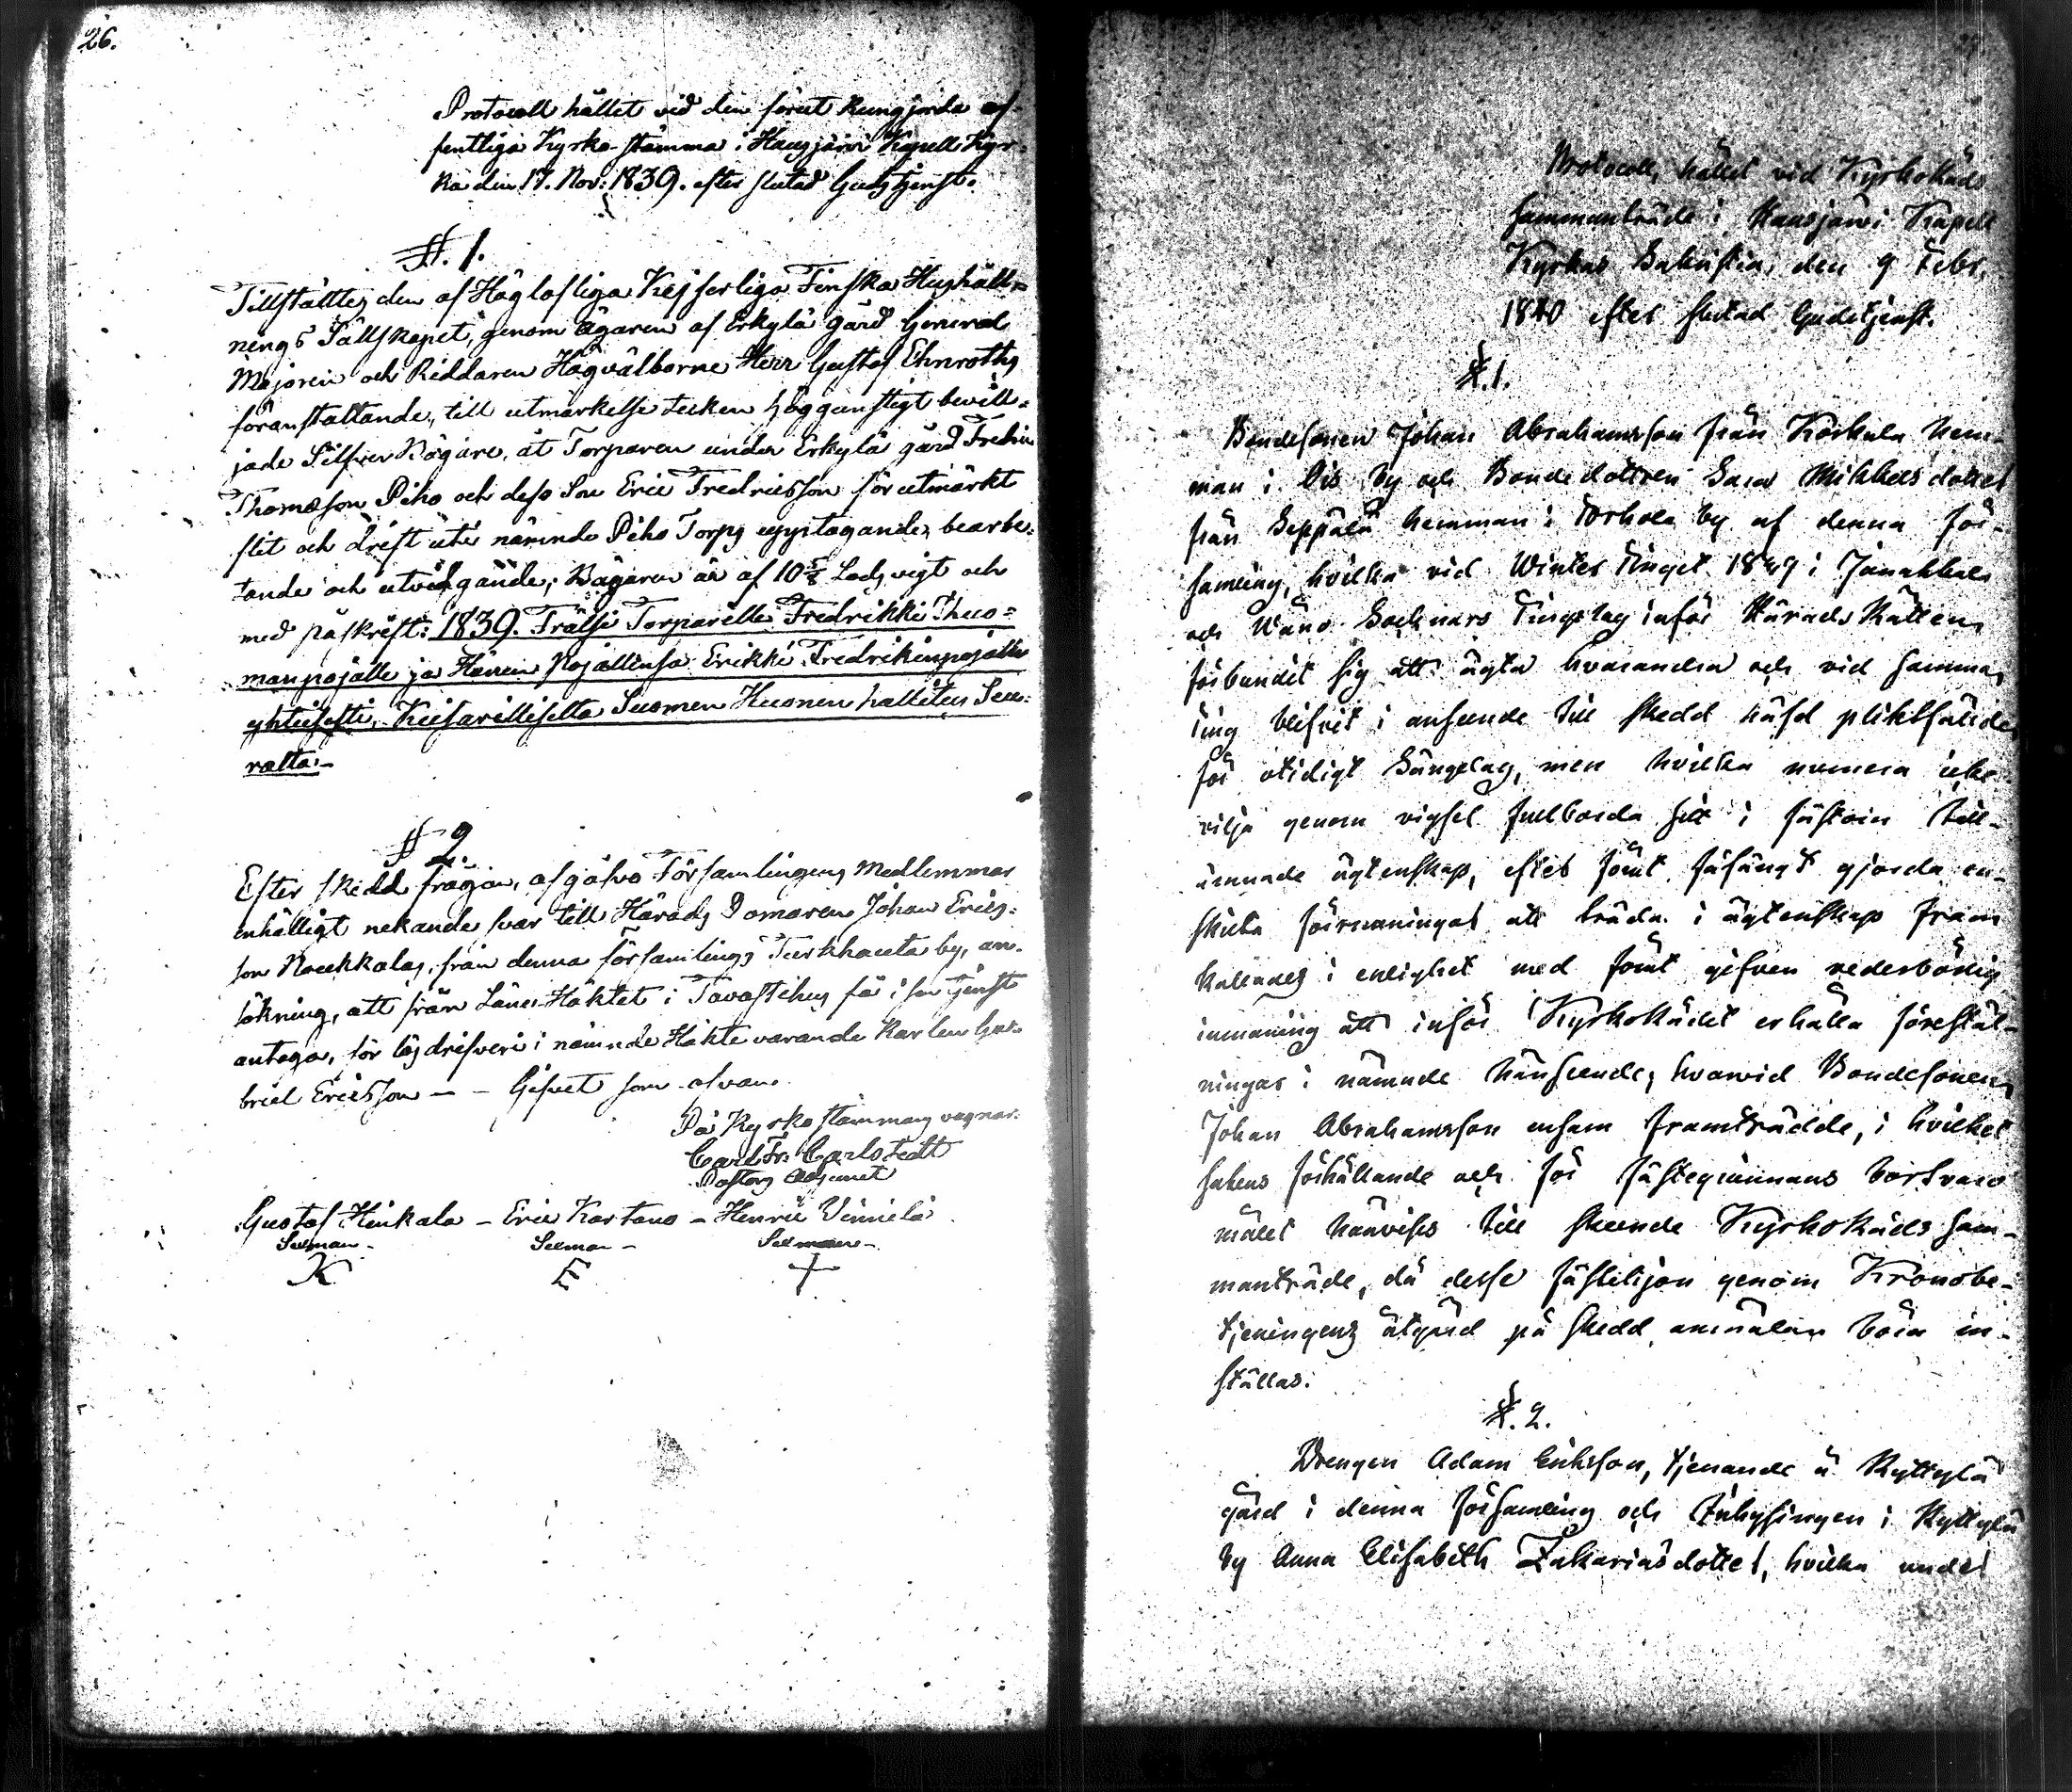 26.
Protocoll hållet vid den förut kungjorde of-
fentliga Kyrko-stämma i Hausjärvi Kapell Kyr-
ka den 17. Nov: 1839. efter slutad Gudstjenst.
§. 1.
Tillställtes den af Höglofliga Kejserliga Finska Hushåll-
nings Sällskapet, genom ägaren af Erkylä gård General
Majoren och Riddaren Högvälborne Herr Gustaf Ehnroths
föranstaltande, till utmärkelse tecken höggunstigt bevill-
jade Silfver Bägare, åt Torparen under Erkylä gård Fredric
Thomasson Piho och dess Son Eric Fredricsson för utmärkt
flit och drift uti nämnde Piho Torps upptagande, bearbe-
tande och utvidgande; Bägaren är af 10 Lods vigt och
med påskrift: 1839. Frälsi Torparille Fredrikki Thuo-
manpojalle ja Hänen Pojallensa Erikki Fredrikinpojalle
yhteisesti, Keisarilliselta Suomen Huonen hallitus Seu-
ralta.
§ 2.
Efter skedd frågan, afgåfvo Församlingens Medlemmar
enhälligt nekande svar till Härads Domaren Johan Erics-
son Roukkalas, från denna församlings Turkhauta by, an-
sökning, att från Läns-Häktet i Tavastehus få i sin tjenst
antaga, för lösdrifveri i nämnde Häkte varande Karlen Ga-
briel Ericsson – – Gifvet som ofvan.
På Kyrkostämmans vägnar.
Carl Fr. Carlstedt
Pastors Adjunct
Gustaf Hinkala – Eric Kartano – Henric Vinnelä
Sexman – Sexman – Sexman –
K E +
Protocoll, hållet vid Kyrkoråds
sammanträde i Hausjärvi Kapell
Kyrkas Sakristia, den 9 Febr.
1840 efter slutad Gudstjenst.
§. 1.
Bondesonen Johan Abrahamsson från Korkala hem-
man i Ois by och Bondedottren Sara Mikkelsdotter
från Seppälä hemman i Torhola by af denna för-
samling, hvilka vid Winter Tinget 1839 i Janakkala
och Wånå Socknars Tingslag inför HäradsRätten
förbundit sig att ägta hvarandra och vid samma
Ting blifvit i anseende till skedd häfd pliktfällde
för otidigt Sängelag, men hvilka numera icke
vilja genom vigsel fullborda sitt i fästom till-
ämnade ägtenskap, efter förut fåfängt gjorda en-
skilta förmaningar att träda i ägtenskap fram
kallades i enlighet med förut gifven vederbörlig
inmaning att inför Kyrkorådet erhålla föreställ-
ningar i nämnde hänseende; hvarvid Bondesonen,
Johan Abrahamsson ensam framträdde, i hvilket
sakens förhållande och för fästeqvinnans bortvaro
målet hänvises till skeende Kyrkoråds sam-
manträde, då desse fästehjon genom Kronobe-
tjeningens åtgärd på skedd anmälan böra in-
ställas.
§. 2.
Drengen Adam Eriksson, tjenande å Ryttylä
gård i denna församling och Inhysingen i Ryttylä
by Anna Elisabeth Zakariasdotter, hvilka under